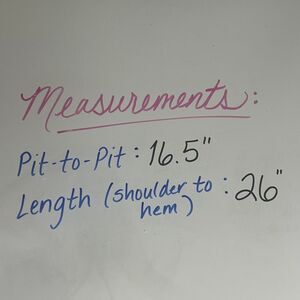 Measurements:
Pit-to-Pit: 16.5"
Length (shoulder to : 26"
hem)